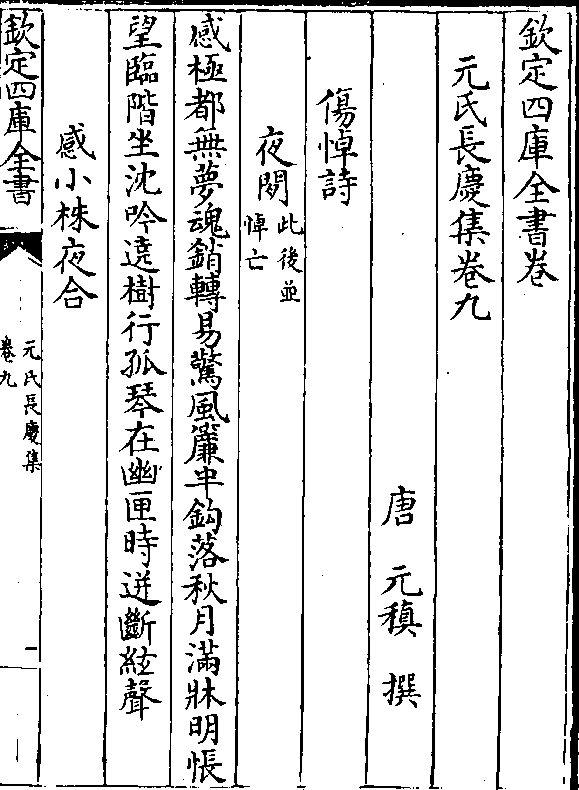 欽定四庫全書卷
元氏長慶集卷九
唐 元稹 撰
傷悼詩
夜閒此後並
悼亡
感極都無夢魂銷轉易驚風簾半鈎落秋月滿牀明悵
望臨階坐沈吟遶樹行孤琴在幽匣時迸斷絃聲
感小株夜合
欽定四庫全書
元氏長慶集
卷九
一